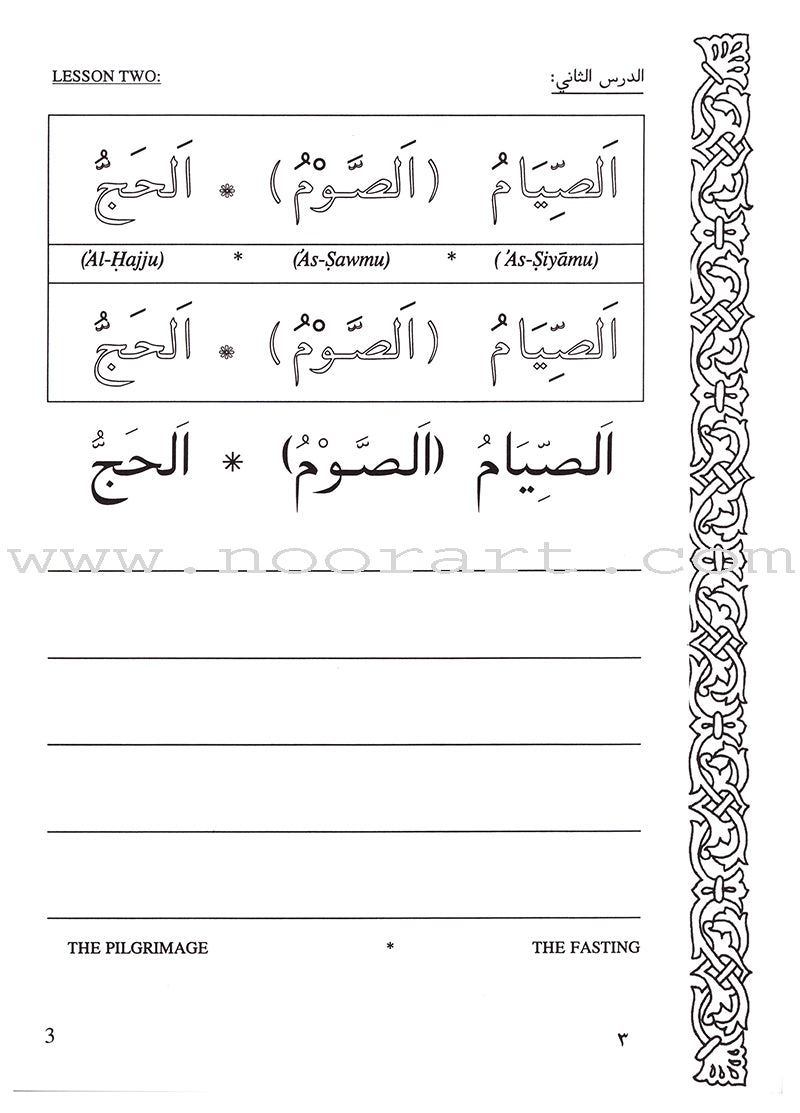 LESSON TWO: الدرس الثاني:
اَلصِّيَامُ (اَلصَّوْمُ) * اَلحَجُّ
('Al-Ḥajju) * ('As-Ṣawmu) * ( 'As-Ṣiyāmu)
اَلصِّيَامُ (اَلصَّوْمُ) * اَلحَجُّ
اَلصِّيَامُ (اَلصَّوْمُ) * اَلحَجُّ
www.noorart.com
THE PILGRIMAGE * THE FASTING
3 ٣